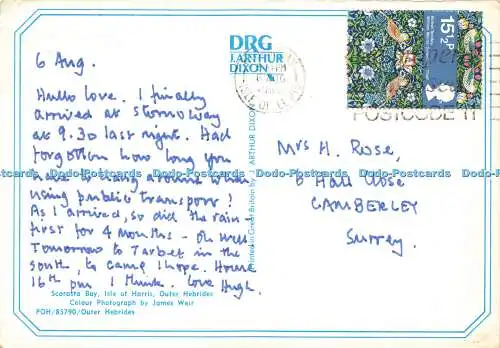 6 Aug.
Hullo love. I finally
arrived at Stornoway
at 9.30 last night. Had
forgotten how long you
have to hang around when
using public transport!
As I arrived, so did the rain -
first for 4 months - oh well
Tomorrow to Tarbet in the
south, to camp I hope. Home
16th pm I think. Love Hugh.
Scarasta Bay, Isle of Harris, Outer Hebrides
Colour Photograph by James Weir
POH/85790/Outer Hebrides
DRG
J.ARTHUR
DIXON
Printed in Great Britain by J. ARTHUR DIXON
15½P
POSTCODE IT
Mrs H. Rose,
6 Hall Close
CAMBERLEY
Surrey.
Dodo-Postcards Dodo-Postcards Dodo-Postcards Dodo-Postcards Dodo-Postcards